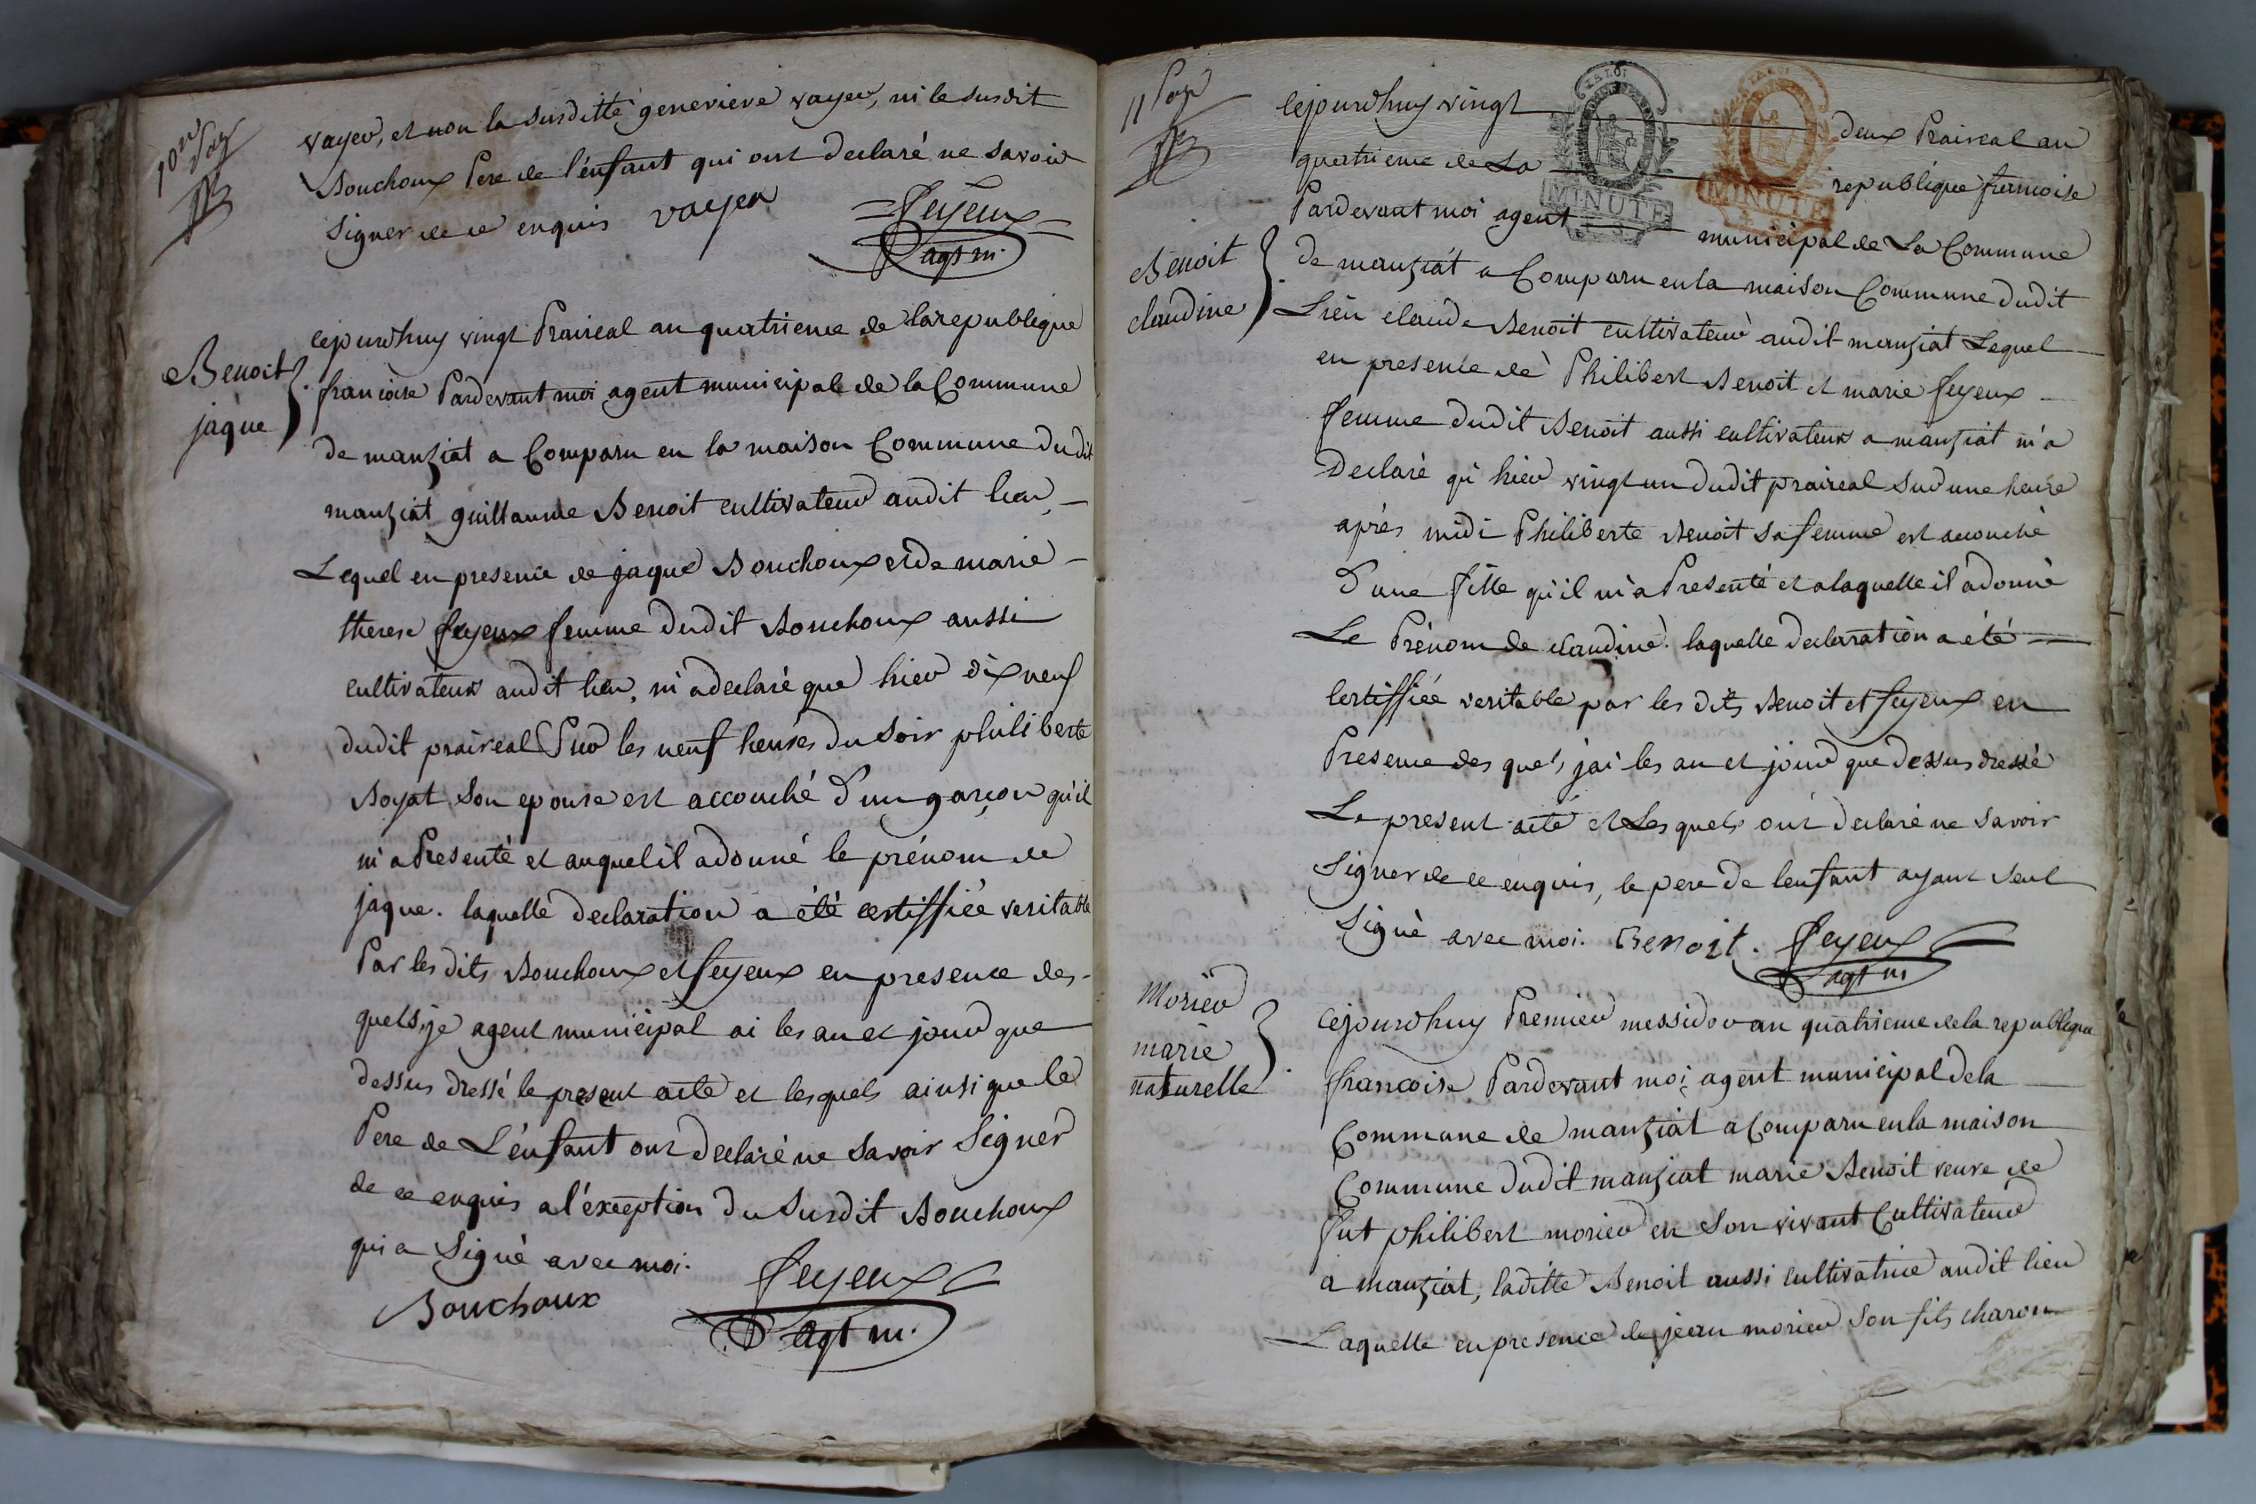 10me page
vayer, et non la susditte genevieve vayer, ni le susdit
Bouchoux Pere de l'enfant qui ont declaré ne savoir
signer de ce enquis vayer
feyeux
agt m.
Benoit
jaque
cejourdhuy vingt Praireal an quatrieme de la republique
francoise Pardevant moi agent municipal de la Commune
de manziat a Comparu en la maison Commune dudit
manziat guillaume Benoit cultivateur audit lieu,
Lequel en presence de jaque Bouchoux et de marie
therese feyeux femme dudit Bouchoux aussi
cultivateurs audit lieu, m'a declaré que hier dix neuf
dudit praireal Sur les neuf heures du soir philiberte
Boyat son epouse est accouché d'un garçon qu'il
m'a Presenté et auquel il a donné le prénom de
jaque. laquelle declaration a été certiffiée veritable
Par les dits Bouchoux et feyeux en presence des
quels, je agent municipal ai les an et jour que
dessus dressé le present acte et lesquels ainsi que le
Pere de L'enfant ont declaré ne savoir signer
de ce enquis a l'exception du susdit Bouchoux
qui a signé avec moi.
Bouchoux
feyeux
agt m.
11 page
cejourdhuy vingt deux Praireal an
quatrieme de La republique francoise
Pardevant moi agent municipal de La Commune
LA LOI
MINUTE
LA LOI
MINUTE
Benoit
claudine
de manziat a Comparu en la maison Commune dudit
Lieu claude Benoit cultivateur audit manziat Lequel
en presence de Philibert Benoit et marie feyeux
femme dudit Benoit aussi cultivateurs a manziat m'a
Declaré qu'hier vingt un dudit praireal sur une heure
après midi Philiberte Benoit sa femme est accouché
D'une fille qu'il m'a Presenté et a laquelle il a donné
Le Prénom de claudine. laquelle declaration a été
certiffiée veritable par les dits Benoit et feyeux en
Presence des quels j'ai les an et jour que dessus dressé
Le present acte et Lesquels ont declaré ne savoir
signer de ce enquis, le pere de lenfant ayant seul
signé avec moi. Benoit. feyeux
agt m
Morier
marie
naturelle
cejourdhuy Premier messidor an quatrieme de la republique
francoise Pardevant moi agent municipal de la
Commune de manziat a Comparu en la maison
Commune dudit manziat marie Benoit veuve de
fut philibert morier en son vivant Cultivateur
a manziat, laditte Benoit aussi cultivatrice audit lieu
Laquelle en presence de jean morier son fils charon